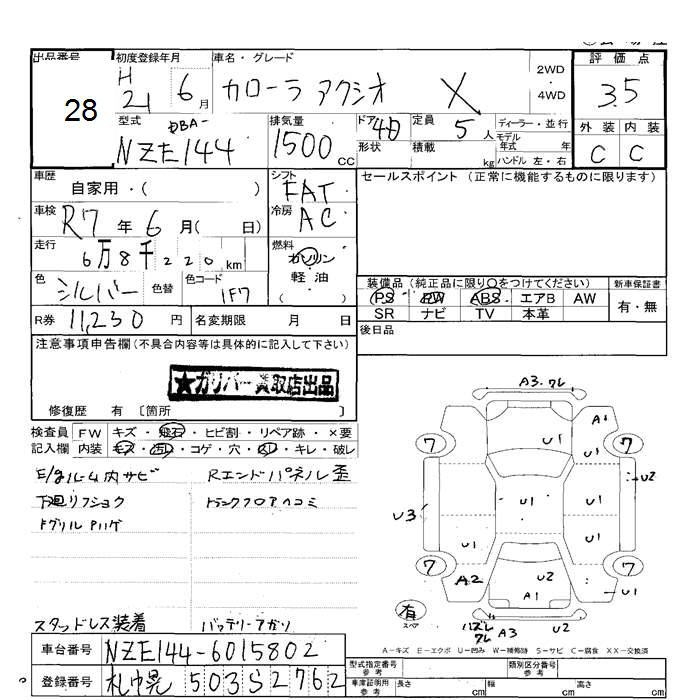 出品番号
28
初度登録年月
H
21 6 月
車名・グレード
カローラ アクシオ X
2WD
・
4WD
評価点
3.5
外装 内装
C C
型式
DBA-
NZE144
排気量
1500 cc
ドア
4D
形状
定員
5 人
積載
kg
ディーラー・並行
モデル
年式 年
ハンドル 左・右
車歴
自家用・( )
シフト
FAT
セールスポイント (正常に機能するものに限ります)
車検
R7 年 6 月( 日)
冷房
AC
走行
6万8千220 km
燃料
ガソリン
軽・油
( )
色
シルバー
色替
色コード
1F7
装備品(純正品に限り○をつけてください)
新車保証書
PS・PW・ABS・エアB AW
SR ナビ TV 本革
有・無
R券 11,230 円
名変期限 月 日
後日品
注意事項申告欄(不具合内容等は具体的に記入して下さい)
★ガリバー買取店出品
修復歴 有 [箇所 ]
検査員
記入欄
FW キズ・飛石・ヒビ割・リペア跡・×要
内装 キズ・凹・コゲ・穴・・キレ・破レ
E/gルーム内サビ
Rエンドパネル歪
下廻りフショク
トランクフロアヘコミ
FグリルPハゲ
スタッドレス装着
バッテリーアガリ
A3.ワレ
A1
7
U1
7
U1
U2
U1
U1
U3
U1
7
A2
U2
A1
7
U1
有
スペア
ハズレ
ワレ A3
U2
A-キズ E-エクボ U-凹み W-補修跡 S-サビ C-腐食 XX-交換済
車台番号
NZE144-6015802
登録番号
札幌 503 S 2762
型式指定番号
参考
類別区分番号
参考
車庫証明用
参考
長さ cm
幅 cm
高さ cm